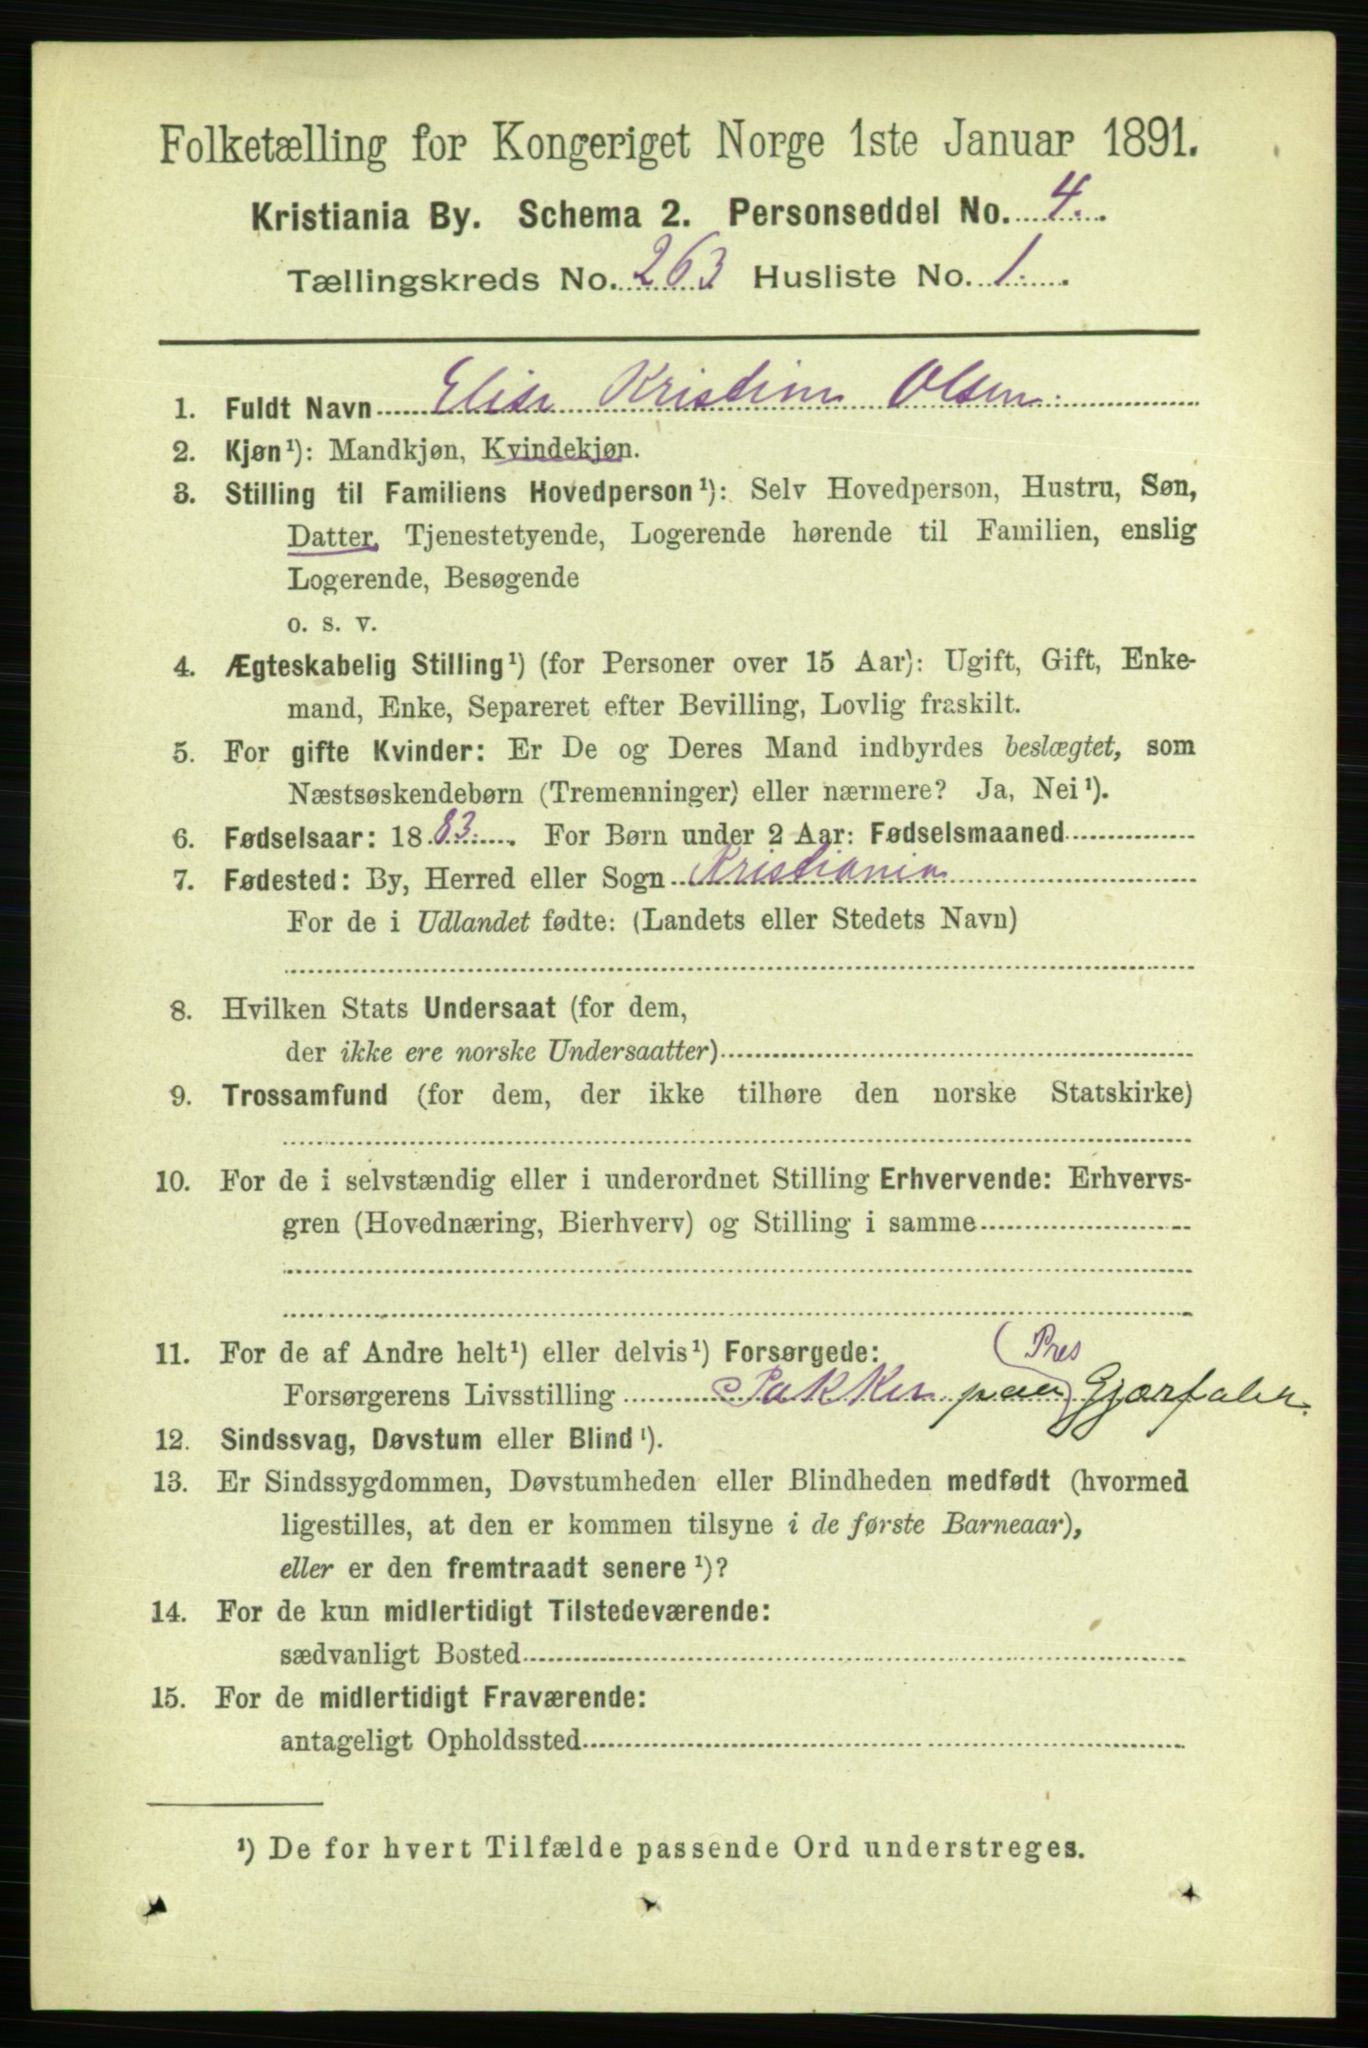 Folketælling for Kongeriget Norge 1ste Januar 1891.
Kristiania By. Schema 2. Personseddel No. 4.
Tællingskreds No. 263 Husliste No. 1.
1. Fuldt Navn Elise Kristine Olsen.
2. Kjøn¹): Mandkjøn, Kvindekjøn.
3. Stilling til Familiens Hovedperson¹): Selv Hovedperson, Hustru, Søn,
Datter, Tjenestetyende, Logerende hørende til Familien, enslig
Logerende, Besøgende
o. s. v.
4. Ægteskabelig Stilling¹) (for Personer over 15 Aar): Ugift, Gift, Enke-
mand, Enke, Separeret efter Bevilling, Lovlig fraskilt.
5. For gifte Kvinder: Er De og Deres Mand indbyrdes beslægtet, som
Næstsøskendebørn (Tremenninger) eller nærmere? Ja, Nei¹).
6. Fødselsaar: 1883. For Børn under 2 Aar: Fødselsmaaned
7. Fødested: By, Herred eller Sogn Kristiania
For de i Udlandet fødte: (Landets eller Stedets Navn)
8. Hvilken Stats Undersaat (for dem,
der ikke ere norske Undersaatter)
9. Trossamfund (for dem, der ikke tilhøre den norske Statskirke)
10. For de i selvstændig eller i underordnet Stilling Erhvervende: Erhvervs-
gren (Hovednæring, Bierhverv) og Stilling i samme
11. For de af Andre helt¹) eller delvis¹) Forsørgede:
(Pres
Forsørgerens Livsstilling Pakker paa)
12. Sindssvag, Døvstum eller Blind¹).
13. Er Sindssygdommen, Døvstumheden eller Blindheden medfødt (hvormed
ligestilles, at den er kommen tilsyne i de første Barneaar),
eller er den fremtraadt senere¹)?
14. For de kun midlertidigt Tilstedeværende:
sædvanligt Bosted
15. For de midlertidigt Fraværende:
antageligt Opholdssted
¹) De for hvert Tilfælde passende Ord understreges.